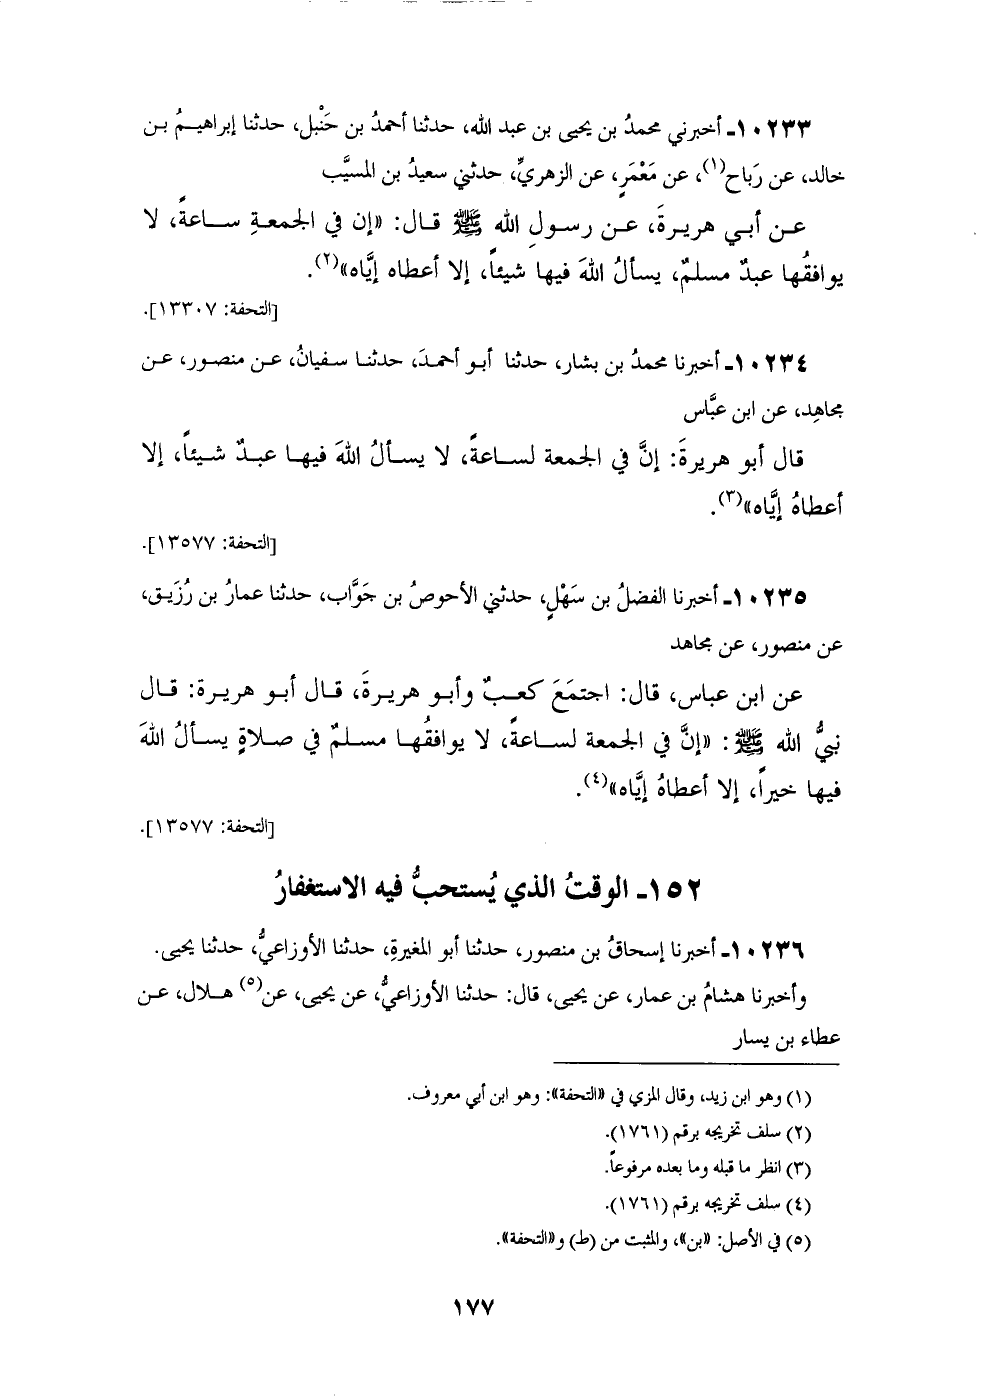 ١٠٢٣٣ـ أخبرني محمدُ بن يحيى بن عبد الله، حدثنا أحمدُ بن حَنْبل، حدثنا إبراهيمُ بن
خالد، عن رَباح(١)، عن مَعْمَرٍ، عن الزهريِّ، حدثني سعيدُ بن المسيَّب
عن أبي هريرةَ، عن رسول الله ﷺ قال: «إن في الجمعةِ ساعةً، لا
يوافقُها عبدٌ مسلمٌ، يسألُ اللهَ فيها شيئاً، إلا أعطاه إيَّاه»(٢).
[التحفة: ١٣٣٠٧].
١٠٢٣٤ـ أخبرنا محمدُ بن بشار، حدثنا أبو أحمدَ، حدثنا سفيانُ، عن منصور، عن
مجاهِد، عن ابن عبَّاس
قال أبو هريرةَ: إنَّ في الجمعة لساعةً، لا يسألُ اللهَ فيها عبدٌ شيئاً، إلا
أعطاهُ إيَّاه»(٣).
[التحفة: ١٣٥٧٧].
١٠٢٣٥ـ أخبرنا الفضلُ بن سَهْلٍ، حدثني الأحوصُ بن جَوَّاب، حدثنا عمارُ بن رُزَيق،
عن منصور، عن مجاهد
عن ابن عباس، قال: اجتمَعَ كعبٌ وأبو هريرةَ، قال أبو هريرة: قال
نبيُّ الله ﷺ: «إنَّ في الجمعة لساعةً، لا يوافقُها مسلمٌ في صلاةٍ يسألُ اللهَ
فيها خيراً، إلا أعطاهُ إيَّاه»(٤).
[التحفة: ١٣٥٧٧].
١٥٢ـ الوقتُ الذي يُستحبُّ فيه الاستغفارُ
١٠٢٣٦ـ أخبرنا إسحاقُ بن منصور، حدثنا أبو المغيرةِ، حدثنا الأوزاعيُّ، حدثنا يحيى.
وأخبرنا هشامُ بن عمار، عن يحيى، قال: حدثنا الأوزاعيُّ، عن يحيى، عن(٥) هلال، عن
عطاء بن يسار
(١) وهو ابن زيد، وقال المزي في «التحفة»: وهو ابن أبي معروف.
(٢) سلف تخريجه برقم (١٧٦١).
(٣) انظر ما قبله وما بعده مرفوعاً.
(٤) سلف تخريجه برقم (١٧٦١).
(٥) في الأصل: «بن»، والمثبت من (ط) و«التحفة».
١٧٧